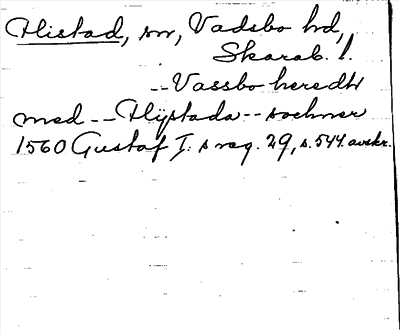 Flistad, sn, Vadsbo hd,
Skarab. l.
-- Vassbo heredt
med -- Flijstada -- sochner
1560 Gustaf I:s reg. 29, s. 544. avskr.